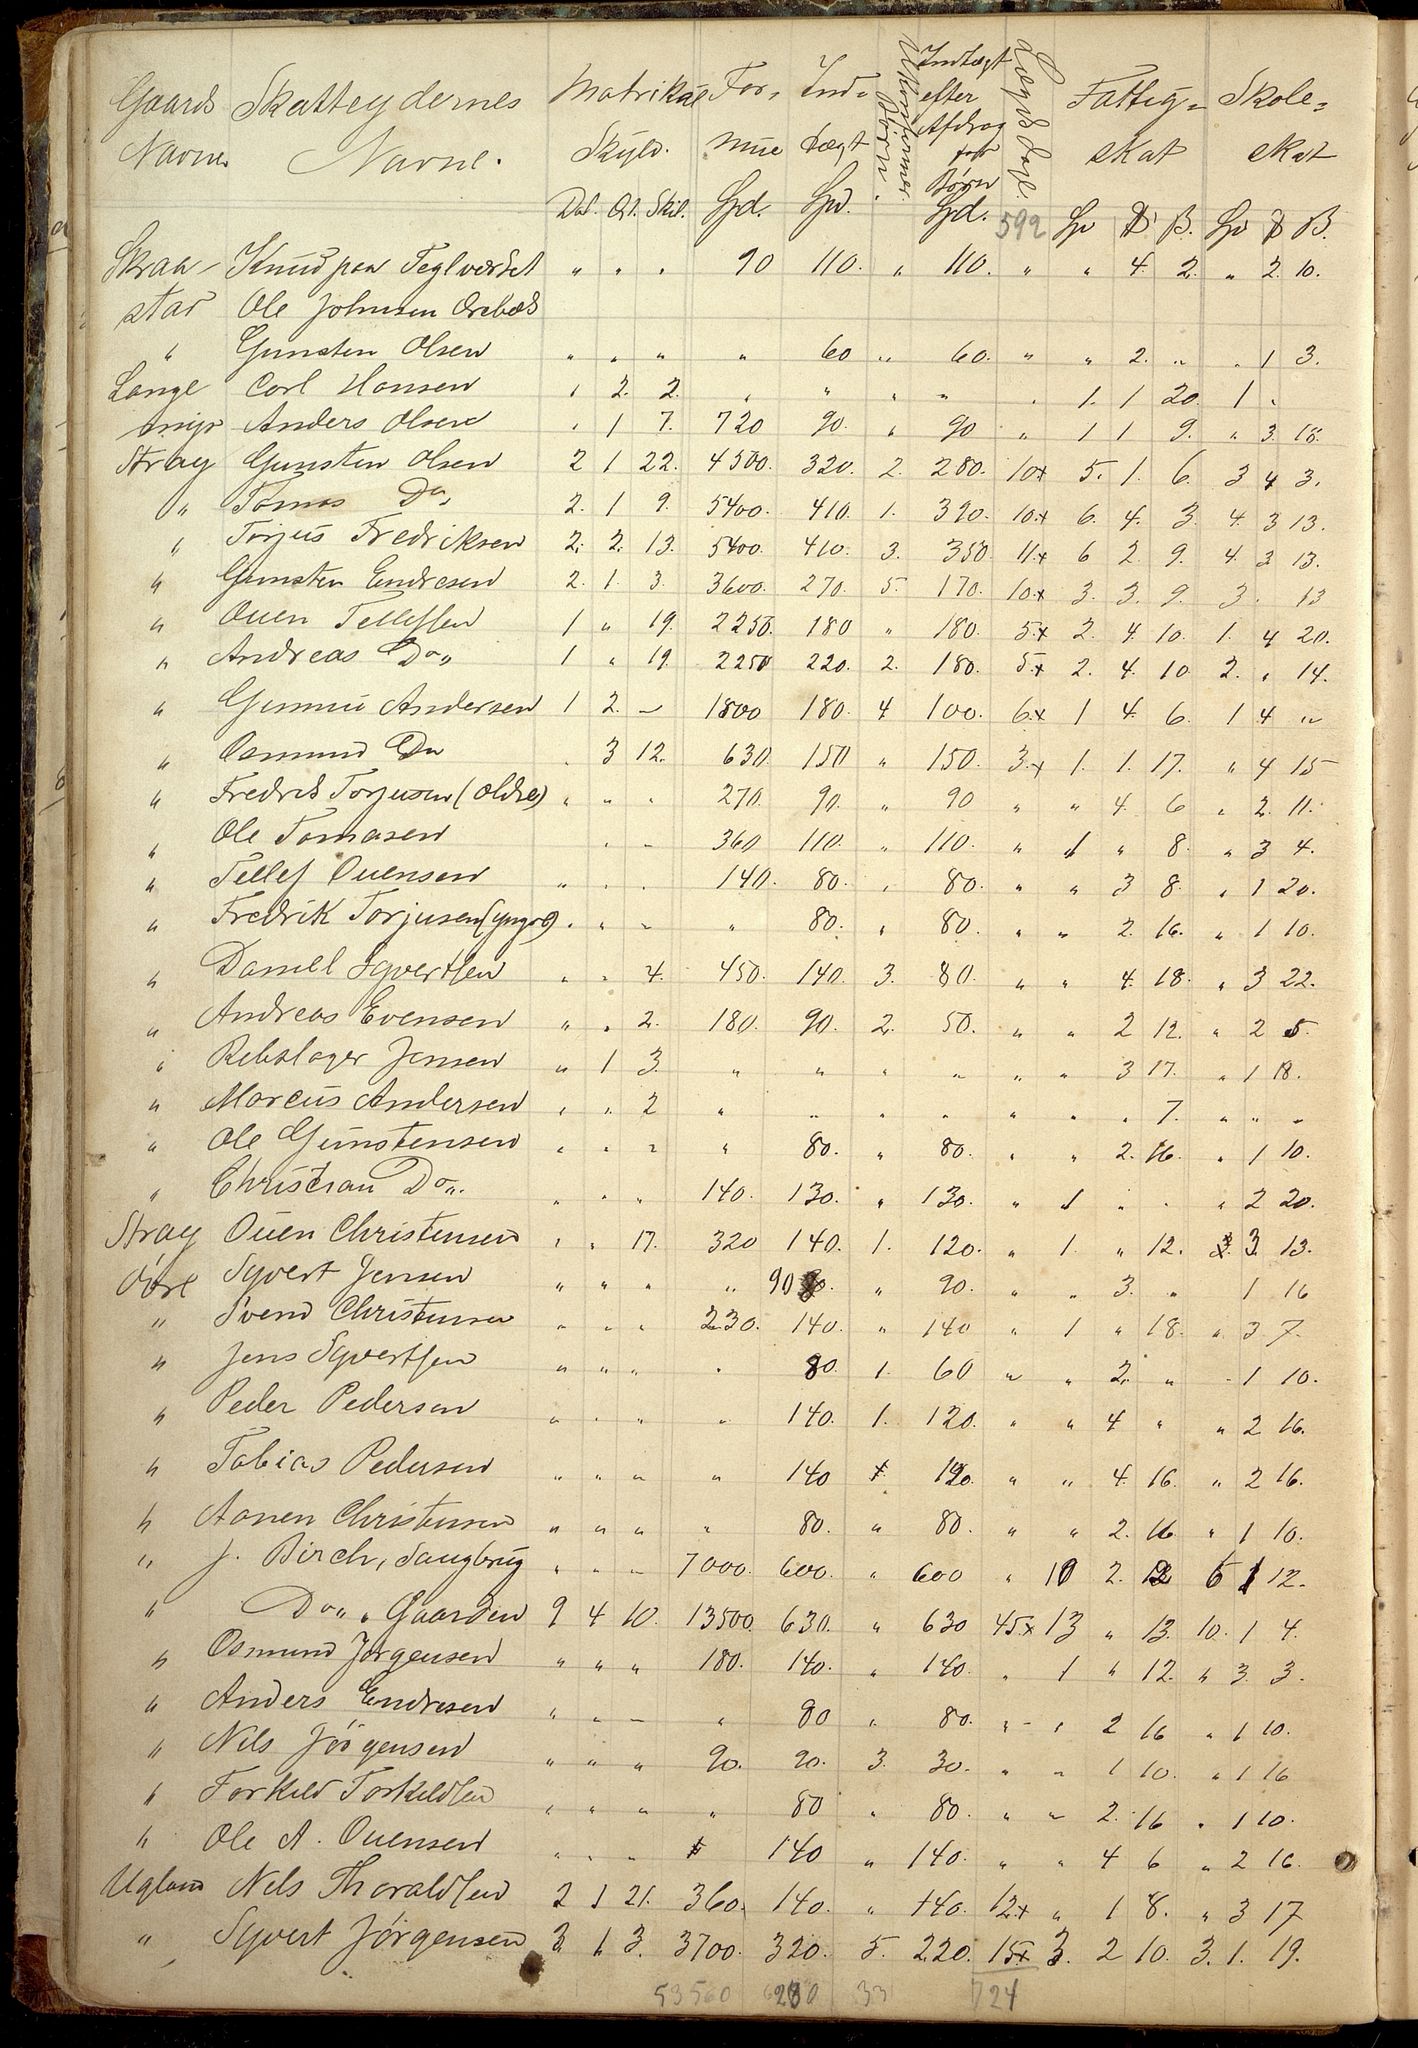 Gaards Navne. Skatteydernes Navne. Matrikul Skyld. Formue Indtægt Ukonfirmer. Børn. Indtægt efter Afdrag for Børn Lægdsdagl. Fattigskat Skoleskat
Dal. Ort. Skil. Spd. Spd. Spd. 592 Sp ₰ β. Sp ₰ β.
Skraa- Knud paa Teglverket " " " 90 110. " 110. " " 4. 2. " 2. 10.
stad Ole Johnsen Orebæk
" Gunsten Olsen " " " " 60 " 60. " " 2. " " 1 3.
Lange Carl Hansen " 2. 2. " " " " " 1. 1 20. 1 "
myr Anders Olsen " 1 7. 720 90. " 90 " 1 1 9. " 3. 18.
Stray Gunsten Olsen 2 1 22. 4500. 320. 2. 280. 10x 5. 1. 6. 3 4 3.
" Tomas Do. 2. 1 9. 5400. 410. 1. 390. 10.x 6. 4. 3. 4. 3 13.
" Torjus Fredriksen 2. 2. 13. 5400. 410. 3. 350. 11.x 6 2. 9. 4. 3 13.
" Gunsten Endresen 2. 1. 3. 3600. 270. 5. 170. 10.x 3. 3. 9. 3. 13
" Ouen Tellefsen 1 " 19. 2250. 180 " 180. 5.x 2. 4. 10. 1. 4 20.
" Andreas Do " 1 " 19. 2250 220. 2. 180. 5.x 2. 4. 10. 2. " 14.
" Gunnu Andersen 1 2. - 1800 180. 4 100. 6.x 1 4. 6. 1 4 "
" Osmund Do " 3 12. 630. 150 " 150. 3.x 1. 1. 17. " 4 15
" Fredrik Torjusen (Oldre) " " " 270. 90. " 90 " " 4. 6 " 2. 11.
" Ole Tomasen " - 360 110. " 110. " 1 " 8. " 3 4.
" Tellef Ouensen " " " 140. 80. " 80. " " 3 8. " 1 20.
" Fredrik Torjusen (yngre) " " - " 80. " 80. " " 2. 16. " 1 10.
" Daniel Syvertsen " " 4. 450. 140. 3. 80. " " 4. 18. " 3 22.
" Andreas Evensen " " 2. 180. 90. 2. 50. " " 2 12. " 2 5.
" Rebslager Jensen " 1 3. " " " " " " 3 17. " 1 18.
" Marcus Andersen " " 2 " " " " " " " 7. " " "
" Ole Gunstensen " " " " 80. " 80. " " 2. 16. " 1 10.
" Christian Do " " " " 140. 130. " 130. " 1 " " " 2 20.
Stray Ouen Christensen " " 17. 320 140. 1. 120. " 1. " 12. 3. 13.
Øvre Syvert Jensen " " " " 90 " 90. " " 3. " 1 16
" Svend Christensen " " " 230. 140. " 140 " 1 " 18. " 3 7.
" Jens Syvertsen " " " " 80. 1. 60 " " 2. " - 1 10.
" Peder Pedersen " " " " 140. 1. 120. " " 4 " " 2 16.
" Tobias Pedersen " " " " 140 120. " " 4. 16. " 2 16.
" Aanen Christensen " " " " 80. " 80. " " 2. 16 " 1 10.
" J. Birch, Saugbrug " " " 7000. 600. " 600 " 10 2. 12 6 1 12.
" Do " " Gaarden 9 4 10. 13500. 630. " 630 45x 13 " 13. 10. 1 4.
" Osmund Jørgensen " " " 180. 140. " 140. " 1 " 12. " 3. 3.
" Anders Endresen " " - " 80 " 80. " - " 2 16 " 1 10.
" Nils Jørgensen " " " 90. 90. 3. 30. " " 1 10. " 1 16
" Torkild Torkildsen " " " " 80 " 80. " " 2. 16 " 1 10.
" Ole A. Ouensen " " " 140 " 140. " " 4 6 " 2 16.
Ugland Nils Thoraldsen 2 1 21. 360. 140. " 140. 12x " 1 8. " 3 17
" Syvert Jørgensen 3. 1 3. 3700. 320. 5. 220. 15x 3. 2 10. 3. 1. 19.
53560 6280 33 724